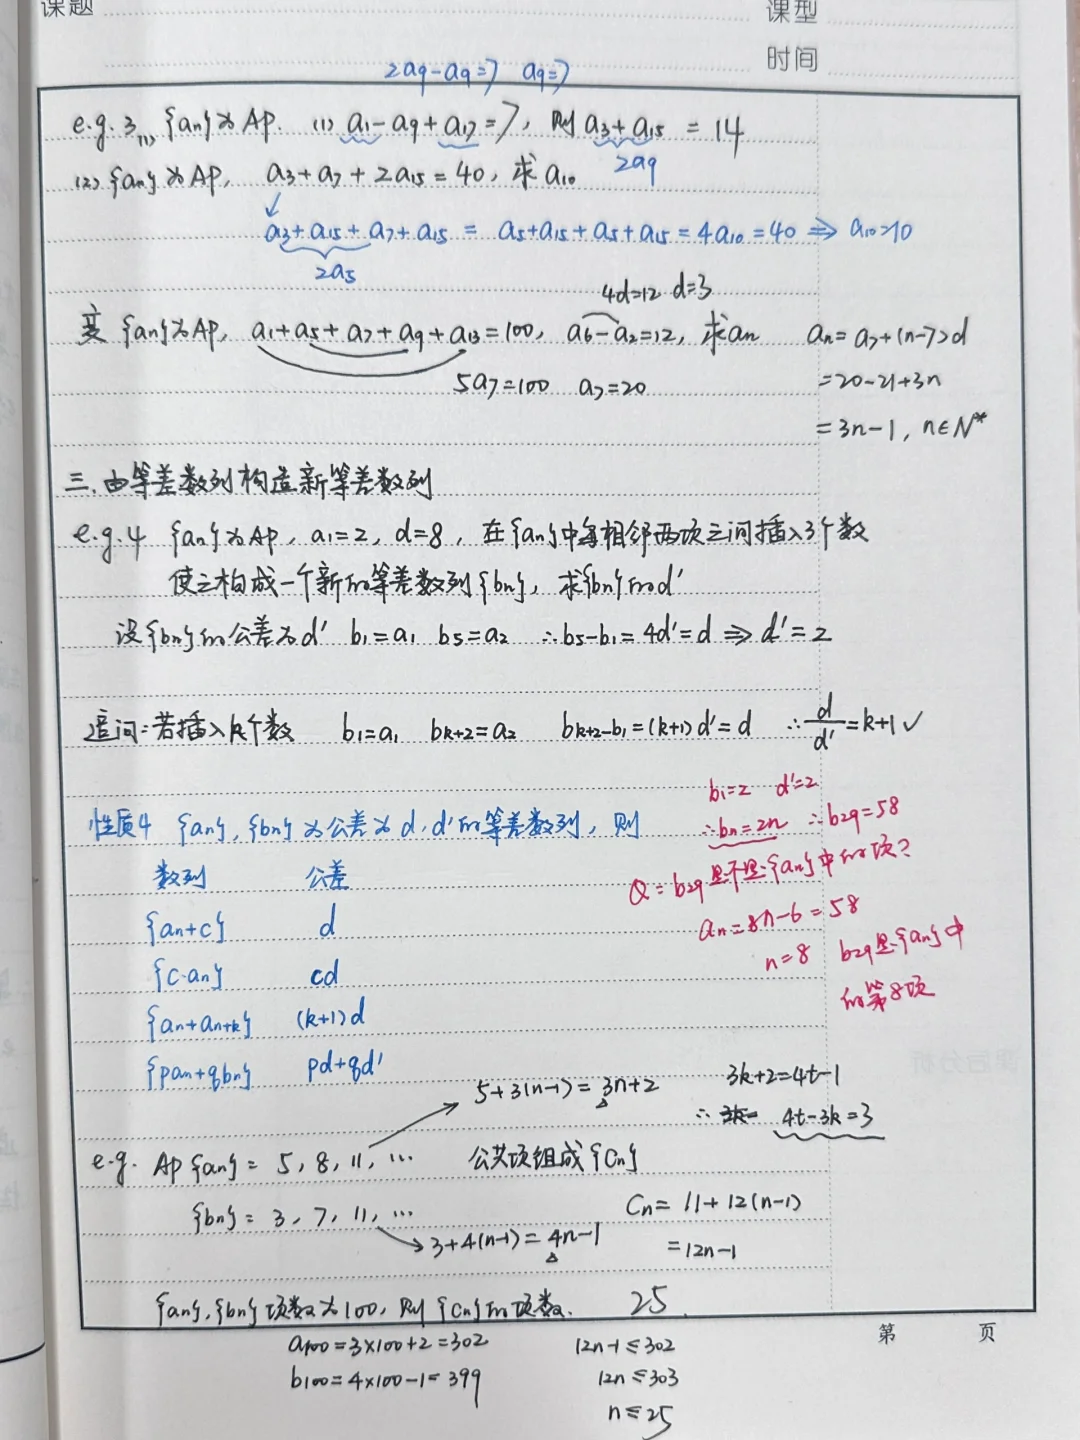 课题
课型
时间
2a9-a9=7 a9=7
e.g.3 (1) {an}为AP. (1) a1-a9+a17=7, 则 a3+a15 = 14
2a9
(2) {an}为AP, a3+a7+2a15=40, 求a10
a3+a15+a7+a15 = a5+a15+a5+a15=4a10=40 ⇒ a10=10
2a5
4d=12 d=3
变 {an}为AP, a1+a5+a7+a9+a13=100, a6-a2=12, 求an an=a7+(n-7)d
5a7=100 a7=20 =20-21+3n
=3n-1, n∈N*
三.由等差数列构造新等差数列
e.g.4 {an}为AP, a1=2, d=8, 在{an}中每相邻两项之间插入3个数
使之构成一个新的等差数列{bn}, 求{bn}的d'
设{bn}的公差为d' b1=a1 b5=a2 ∴b5-b1=4d'=d ⇒ d'=2
追问:若插入k个数 b1=a1 bk+2=a2 bk+2-b1=(k+1)d'=d ∴d/d'=k+1✓
b1=2 d'=2
性质4 {an},{bn}为公差为d,d'的等差数列, 则
∴bn=2n ∴b29=58
数列 公差
Q=b29是不是{an}中的项?
{an+c} d
an=8n-6=58
{c·an} cd
n=8 b29是{an}中
的第8项
{an+an+k} (k+1)d
{pan+qbn} pd+qd'
5+3(n-1)=3n+2
3k+2=4t-1
∴ 4t-3k=3
e.g. AP {an}= 5, 8, 11, … 公共项组成{Cn}
{bn}= 3, 7, 11, … Cn= 11+12(n-1)
3+4(n-1)=4n-1 =12n-1
{an},{bn}项数为100, 则{Cn}的项数. 25
第 页
a100=3×100+2=302 12n-1≤302
b100=4×100-1=399 12n≤303
n≤25